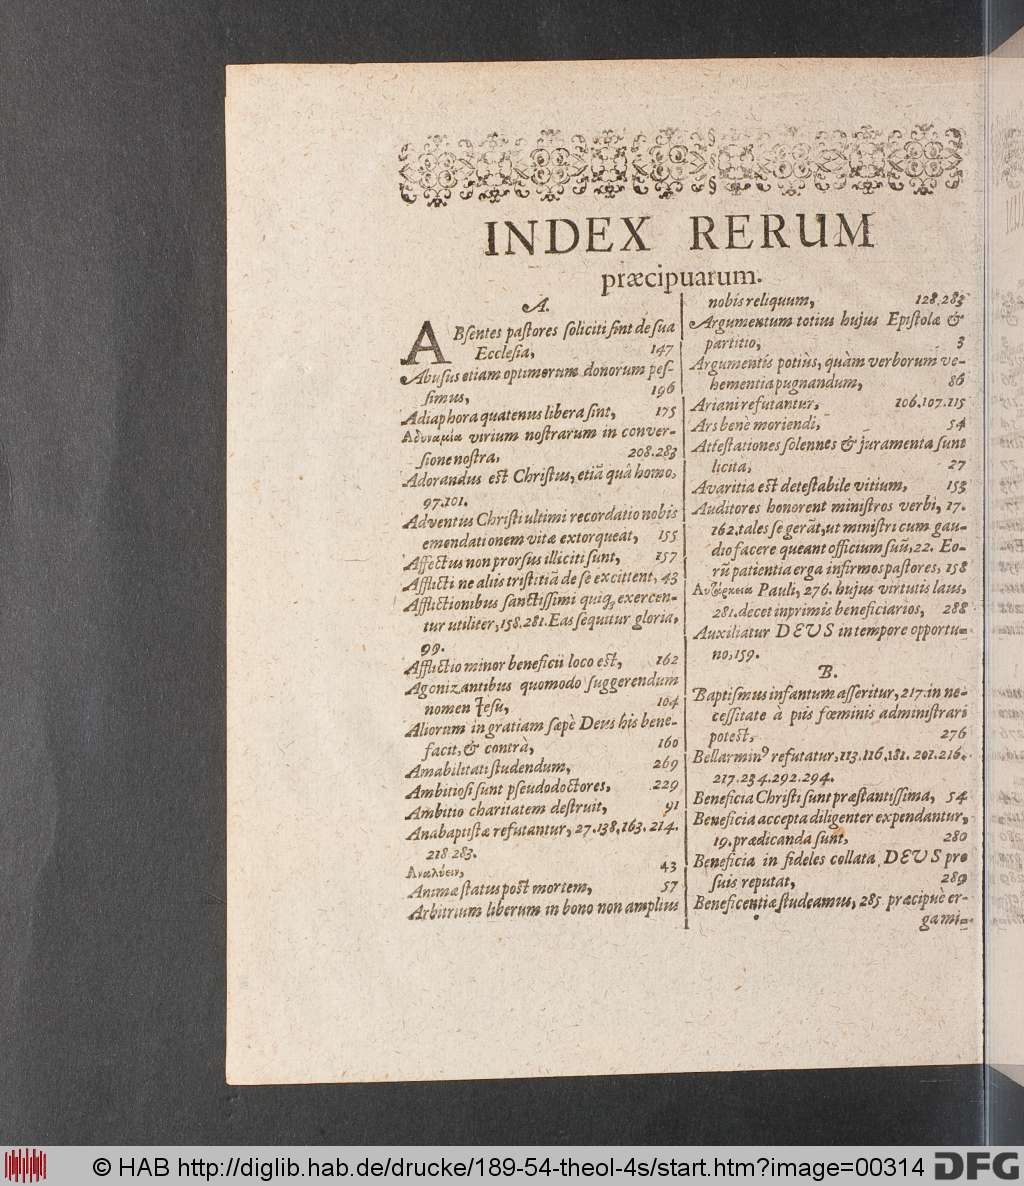 INDEX RERUM
præcipuarum.
A.
ABsentes pastores soliciti sint de sua
Ecclesia, 147
Abusus etiam optimorum donorum pes-
simus, 196
Adiaphora quatenus libera sint, 175
Αδυναμία virium nostrarum in conver-
sione nostra, 208.283
Adorandus est Christus, etiã quâ homo,
97.101.
Adventus Christi ultimi recordatio nobis
emendationem vitæ extorqueat, 155
Affectus non prorsus illiciti sunt, 157
Afflicti ne aliis tristitiã de se excitent, 43
Afflictionibus sanctissimi quiq; exercen-
tur utiliter, 158.281. Eas sequitur gloria,
99.
Afflictio minor beneficii loco est, 162
Agonizantibus quomodo suggerendum
nomen Jesu, 104
Aliorum in gratiam sæpè Deus his bene-
facit, & contrà, 160
Amabilitati studendum, 269
Ambitiosi sunt pseudodoctores, 229
Ambitio charitatem destruit, 91
Anabaptistæ refutantur, 27.138.163.214.
218.283.
Αναλύειν, 43
Animæ status post mortem, 57
Arbitrium liberum in bono non amplius
nobis reliquum, 128.283
Argumentum totius hujus Epistolæ &
partitio, 3
Argumentis potiùs, quàm verborum ve-
hementia pugnandum, 86
Ariani refutantur, 106.107.115
Ars benè moriendi, 54
Attestationes solennes & juramenta sunt
licita, 27
Avaritia est detestabile vitium, 153
Auditores honorent ministros verbi, 17.
162. tales se gerãt, ut ministri cum gau-
dio facere queant officium suũ, 22. Eo-
rũ patientia erga infirmos pastores, 158
Αυτάρκεια Pauli, 276. hujus virtutis laus,
281. decet inprimis beneficiarios, 288
Auxiliatur DEUS in tempore opportu-
no, 159.
B.
Baptismus infantum asseritur, 217. in ne-
cessitate à piis fœminis administrari
potest, 276
Bellarminꝰ refutatur, 113.116.181. 201.216.
217.234.292.294.
Beneficia Christi sunt præstantissima, 54
Beneficia accepta diligenter expendantur,
19. prædicanda sunt, 280
Beneficia in fideles collata DEUS pro
suis reputat, 289
Beneficentiæ studeamus, 285 præcipuè er-
ga mi-
© HAB http://diglib.hab.de/drucke/189-54-theol-4s/start.htm?image=00314
DFG